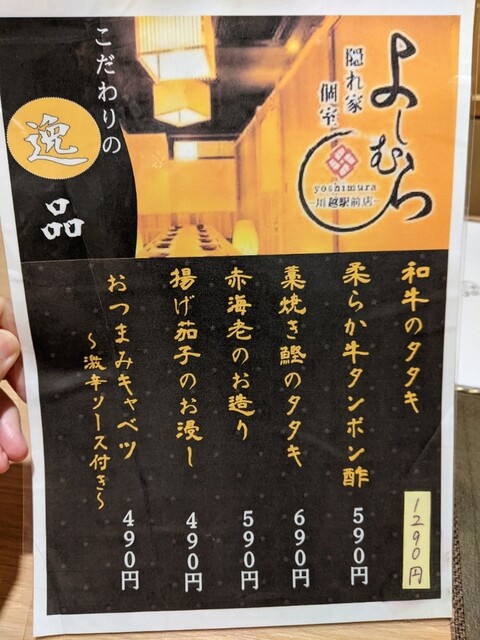 こだわりの
逸品
隠れ家
個室
よしむら
yoshimura
-川越駅前店-
和牛のタタキ
1290円
柔らか牛タンポン酢
590円
藁焼き鰹のタタキ
690円
赤海老のお造り
590円
揚げ茄子のお浸し
490円
おつまみキャベツ
～激辛ソース付き～
490円